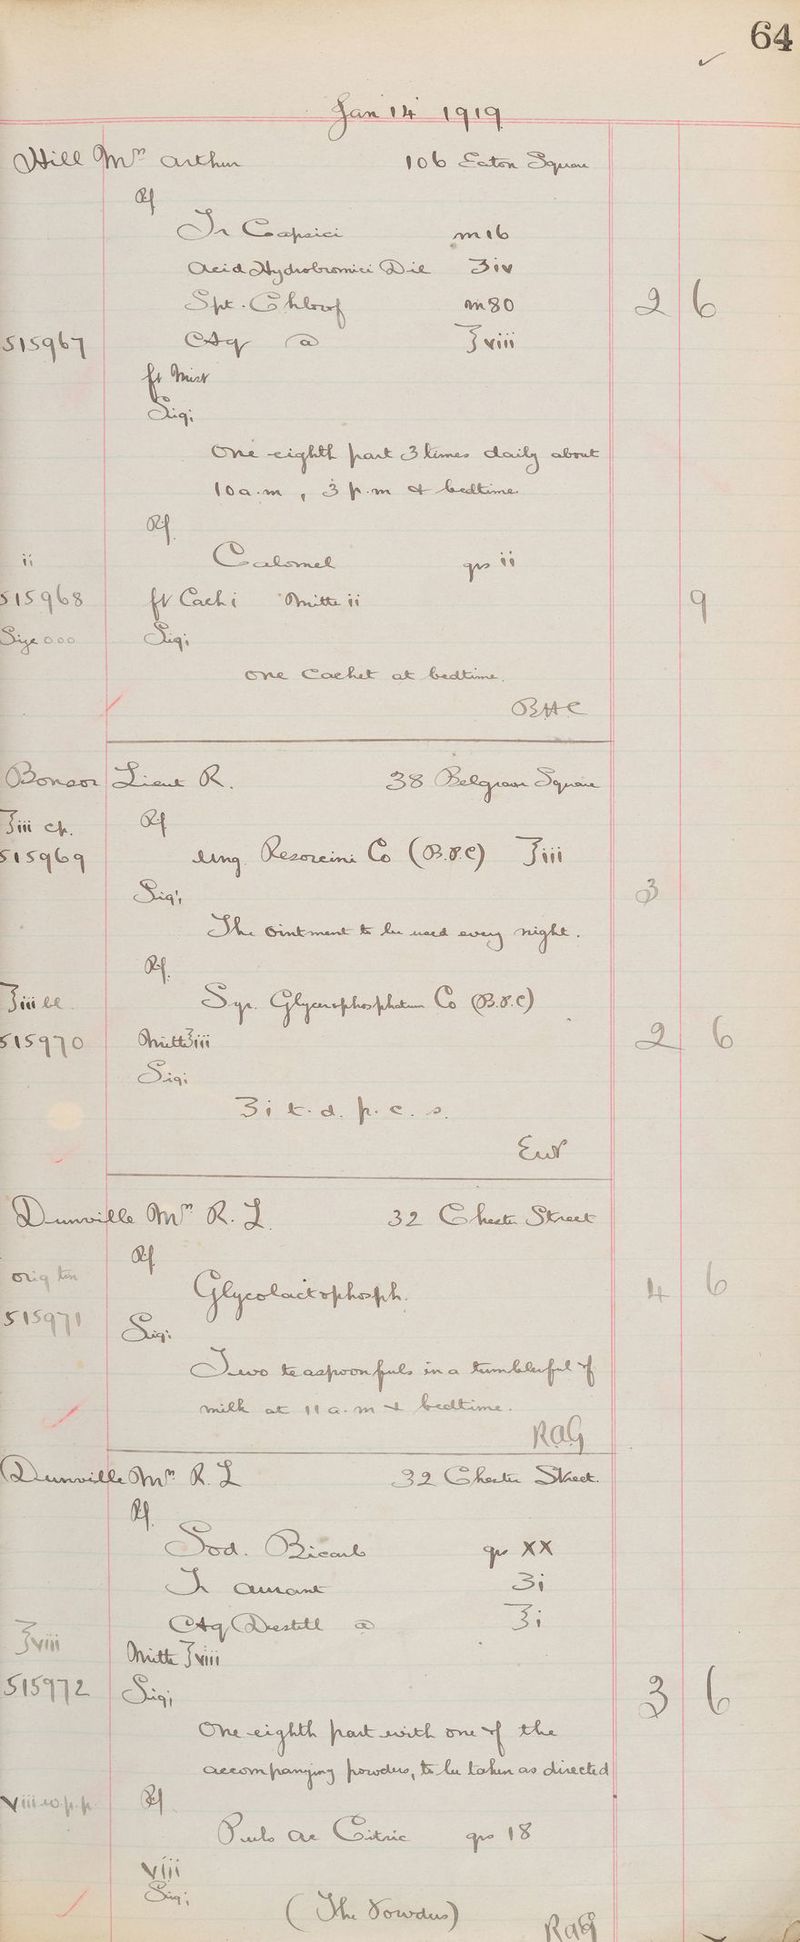 64
Jan 14 1919
Hill Mrs Arthur 106 Eaton Square
Rx
Tr Capsici m16
Acid Hydrobromici Dil ʒiv
Spt. Chlorof m80 2 6
515967 Aq @ ℥viii
ft Mist
Sig:
One eighth part 3 times daily about
10 a.m, 3 p.m & bedtime.
Rx
ii Calomel grs ii
515968 ft Cach i Mitte ii 9
Size 000 Sig:
One Cachet at bedtime.
BHC
Bonsor Lieut R. 38 Belgrave Square
℥iii cp. Rx
515969 Ung. Resorcini Co (B.P.C) ℥iii
Sig: 3
The Ointment to be used every night.
Rx
℥iii Syr. Glycerophosphatum Co (B.P.C)
515970 Mitte ℥iii 2 6
Sig:
ʒi t.d. p.c.s.
Dunville Mrs R. L. 32 Chester Street
Rx
orig tin Glycolactophosph. 4 6
515971 Sig:
Two teaspoonfuls in a tumblerful of
milk at 11 a.m & bedtime.
RAG
Dunville Mrs R. L 32 Chester Street.
Rx
Sod. Bicarb grs XX
Tr Aurant ʒi
Aq Destill @ ℥i
℥viii Mitte ℥viii
515972 Sig: 3 6
One eighth part with one of the
accompanying powders, to be taken as directed
viii w.p.p. Rx
Pulv Ac Citric grs 18
viii
Sig:
(The Powders)
RAG